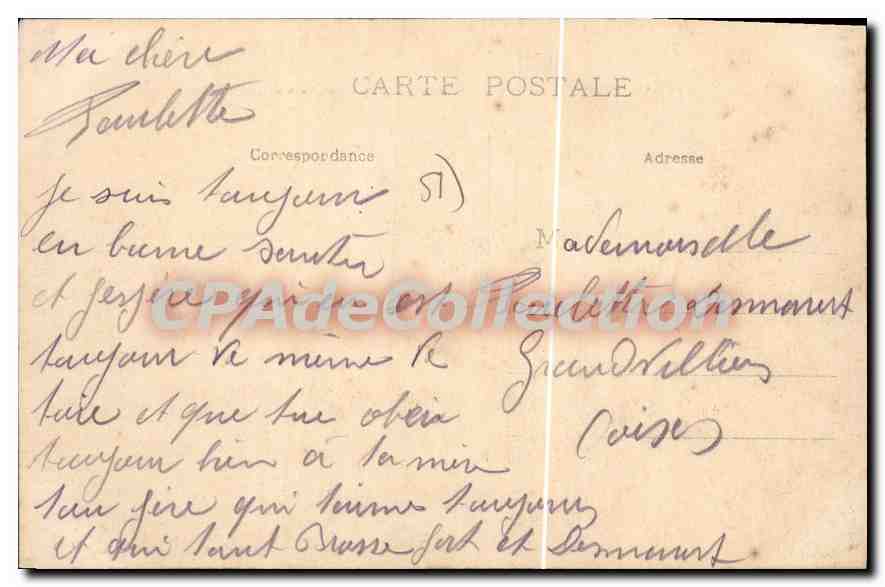 Ma chère
Paulette
CARTE POSTALE
Correspondance
Adresse
je suis toujour
en bonne santer
et jesspère qui en est
toujour de même de
toie et que tu obeix
toujour bien à ta mère
ton père qui taimes toujours
et qui tant Brasse fort et Desmarest
51)
Mademoiselle
Paulette Desmarest
Grandvilliers
(oise)
CPAdeCollection